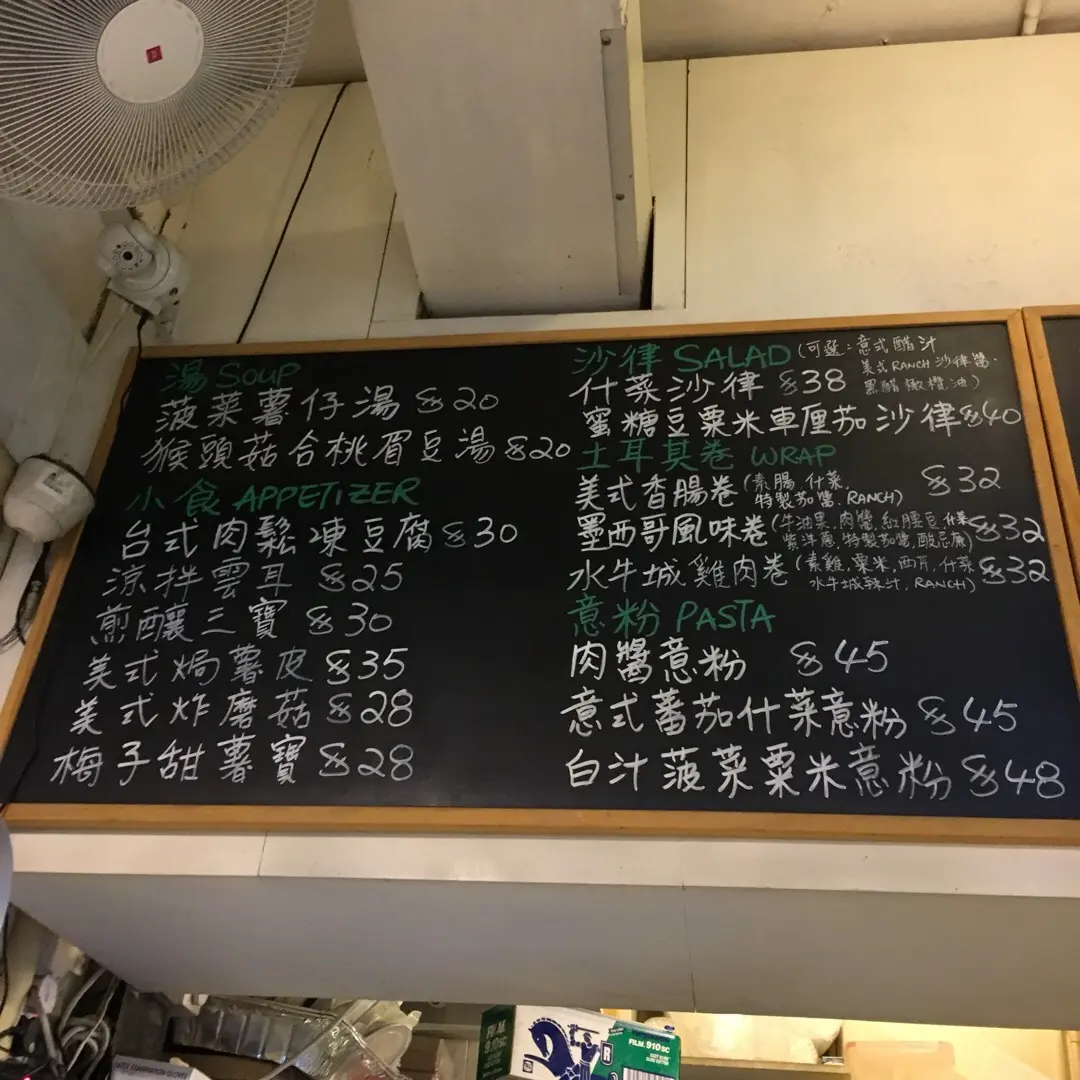 湯 SOUP
菠菜薯仔湯 $20
猴頭菇合桃眉豆湯 $20
小食 APPETIZER
台式肉鬆凍豆腐 $30
涼拌雲耳 $25
煎釀三寶 $30
美式焗薯皮 $35
美式炸磨菇 $28
梅子甜薯寶 $28
沙律 SALAD (可選:意式醋汁
美式RANCH沙律醬.
黑醋橄欖油)
什菜沙律 $38
蜜糖豆粟米車厘茄沙律 $40
土耳其卷 WRAP
美式香腸卷 (素腸, 什菜, $32
特製茄醬, RANCH)
墨西哥風味卷 (牛油果, 肉醬, 紅腰豆, 什菜 $32
紫洋蔥, 特製茄醬, 酸忌廉)
水牛城雞肉卷 (素雞, 粟米, 西芹, 什菜 $32
水牛城辣汁, RANCH)
意粉 PASTA
肉醬意粉 $45
意式蕃茄什菜意粉 $45
白汁菠菜粟米意粉 $48
FILM
910SC
R
FILM 910SC